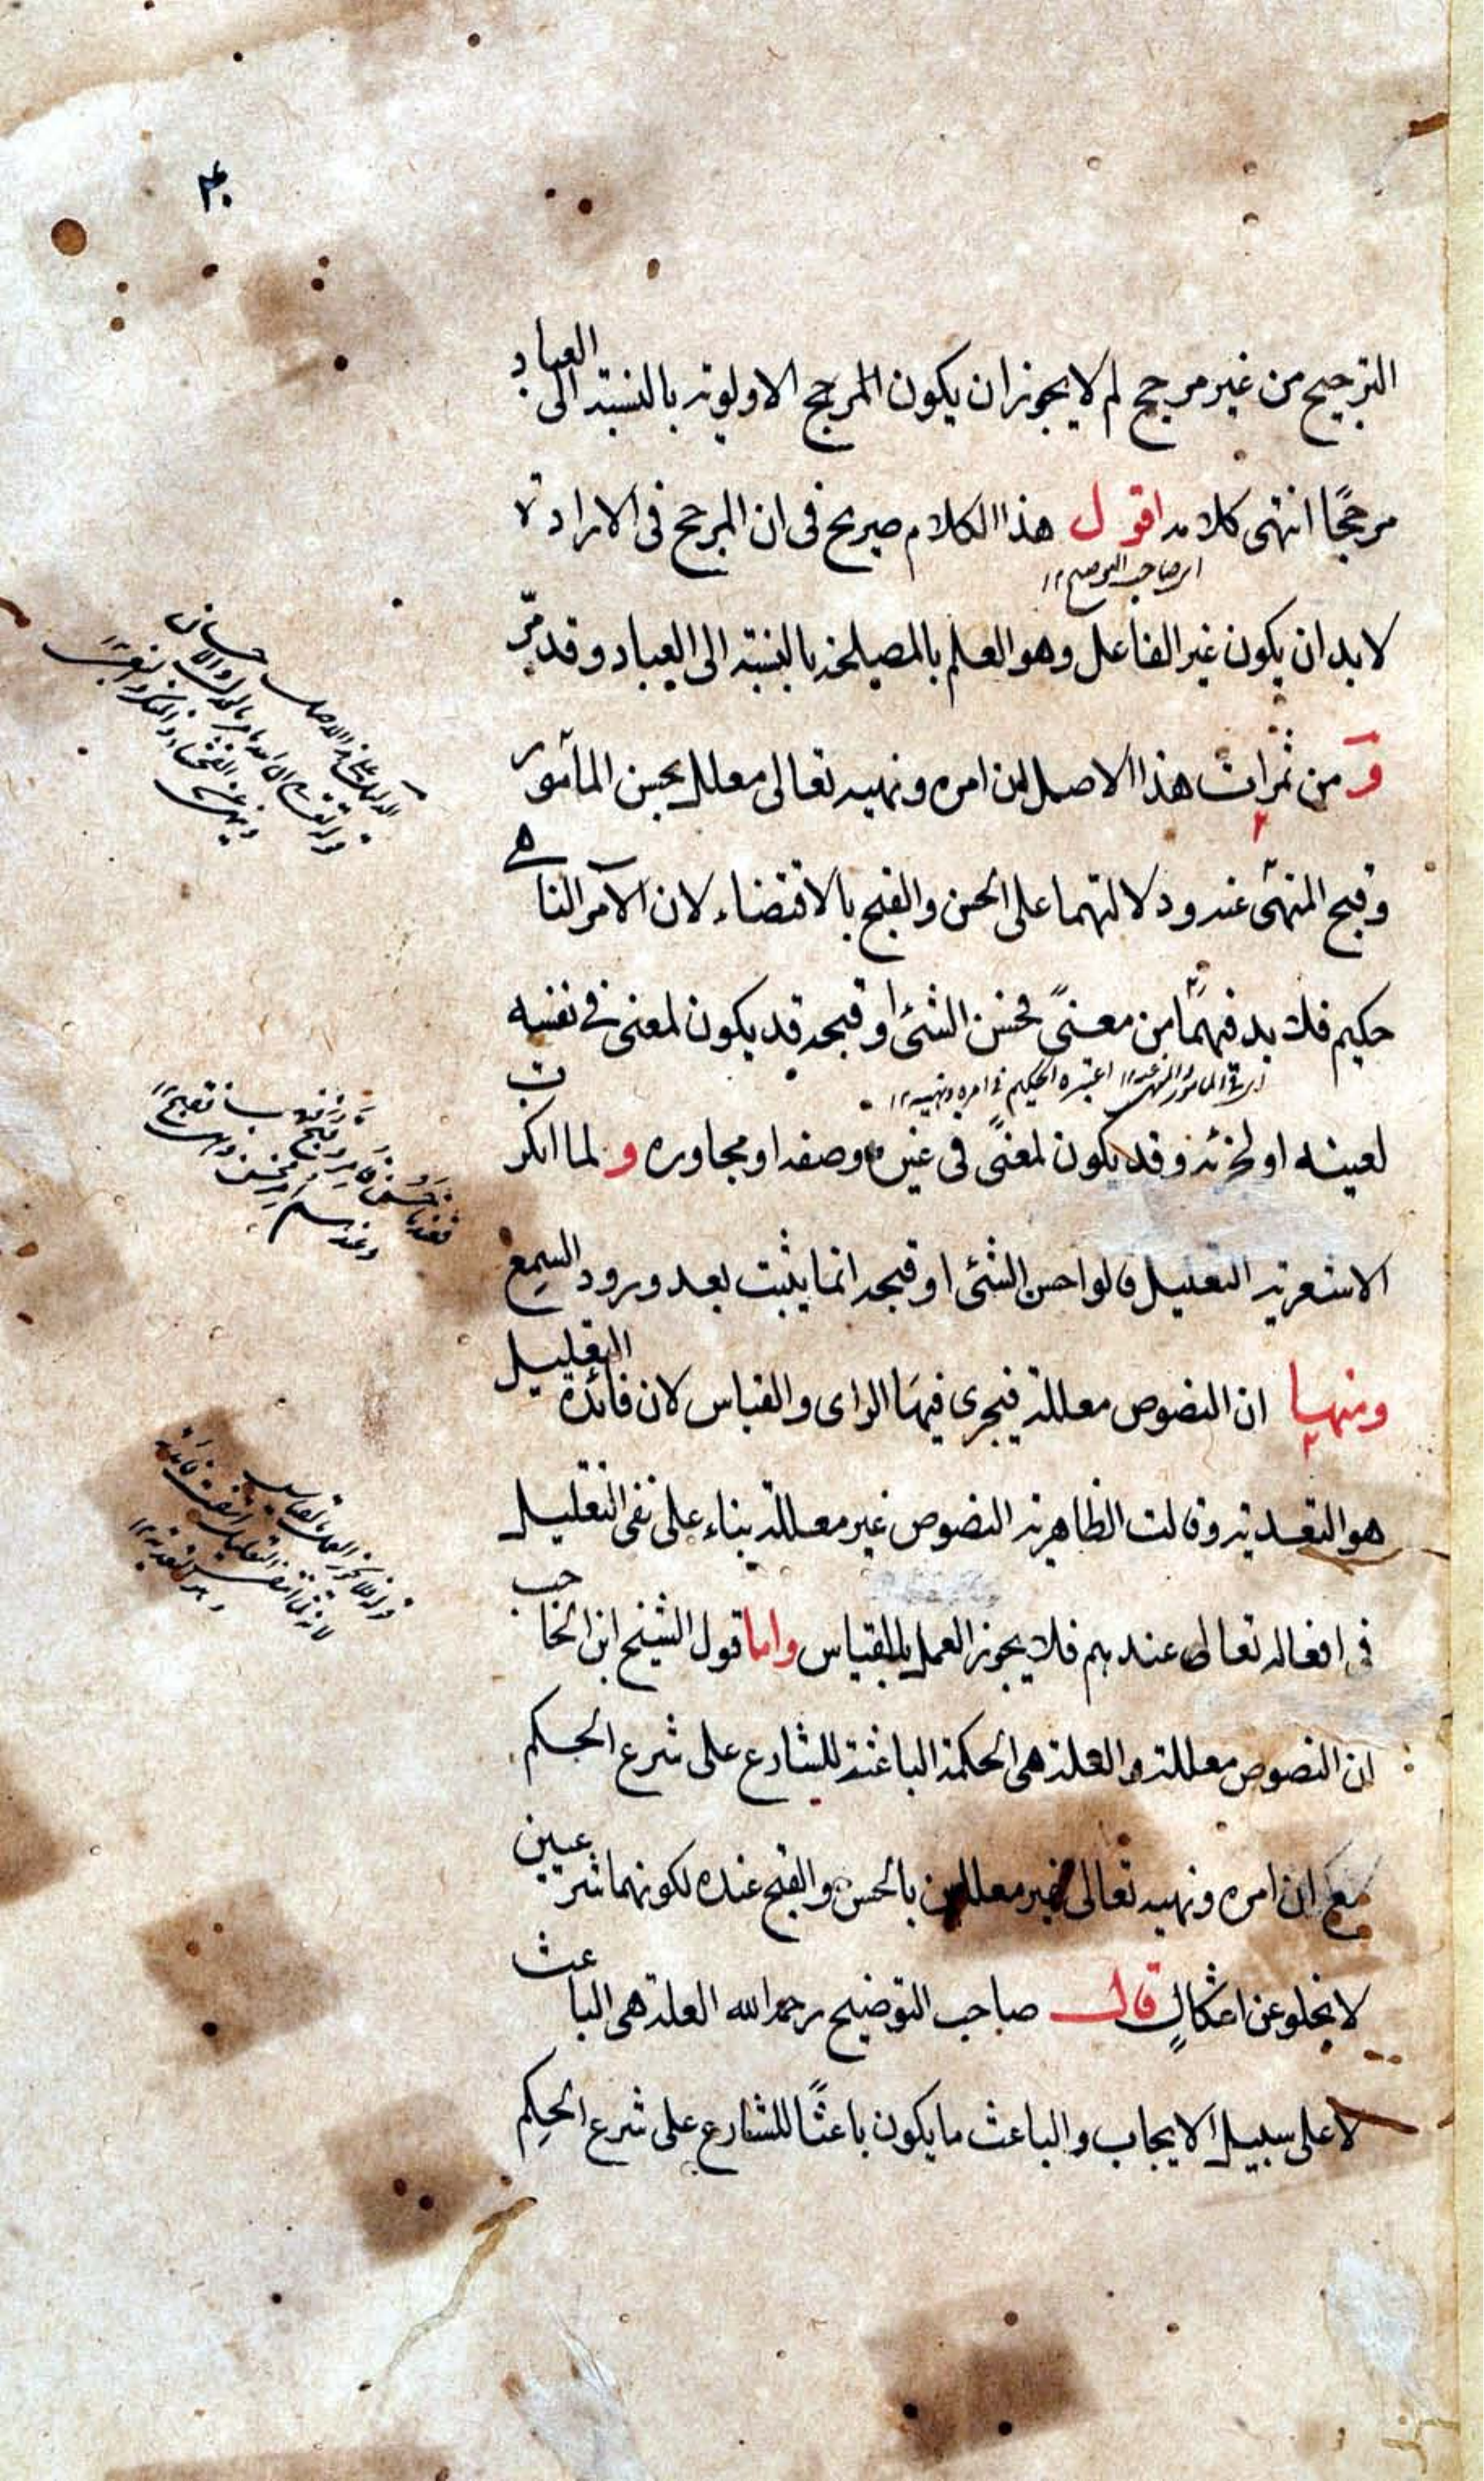 ۴۰
الترجيح من غير مرجح لم لا يجوز ان يكون المرجح الاولوية بالنسبة الى العباد
مرجحًا انتهى كلامه اقول هذا الكلام صريح فى ان المرجح فى الارادة
اى صاحب التوضيح ١٢
لا بد ان يكون غير الفاعل وهو العلم بالمصلحة بالنسبة الى العباد وقد مرّ
و من ثمرات هذا الاصل ان امره ونهيه تعالى معلل بحسن المأمور
وقبح المنهى عنه ودلالتهما على الحسن والقبح بالاقتضاء لان الآمر الناهى
حكيم فلا بد فيهما من معنىً فحسن الشئ او قبحه قد يكون لمعنى فى نفسه
اى فى المامور والمنهى عنه ١٢ اعتبره الحكيم فى امره ونهيه ١٢
لعينه او لجزئه وقد يكون لمعنىً فى غيره وصفه او مجاوره و لما انكرت
الاشعرية التعليل قالوا حسن الشئ او قبحه انما يثبت بعد ورود السمع
ومنها ان النصوص معللة فيجرى فيها الراى والقياس لان فائدة التعليل
هو التعدية وقالت الظاهرية النصوص غير معللة بناء على نفى التعليل
فى افعاله تعالى عندهم فلا يجوز العمل بالقياس واما قول الشيخ ابن الحاجب
ان النصوص معللة والعلة هى الحكمة الباعثة للشارع على شرع الحكم
مع ان امره ونهيه تعالى غير معللين بالحسن والقبح عنده لكونهما شرعيين
لا يخلو عن اشكالٍ قال صاحب التوضيح رحمه الله العلة هى الباعث
لا على سبيل الايجاب والباعث ما يكون باعثًا للشارع على شرع الحكم